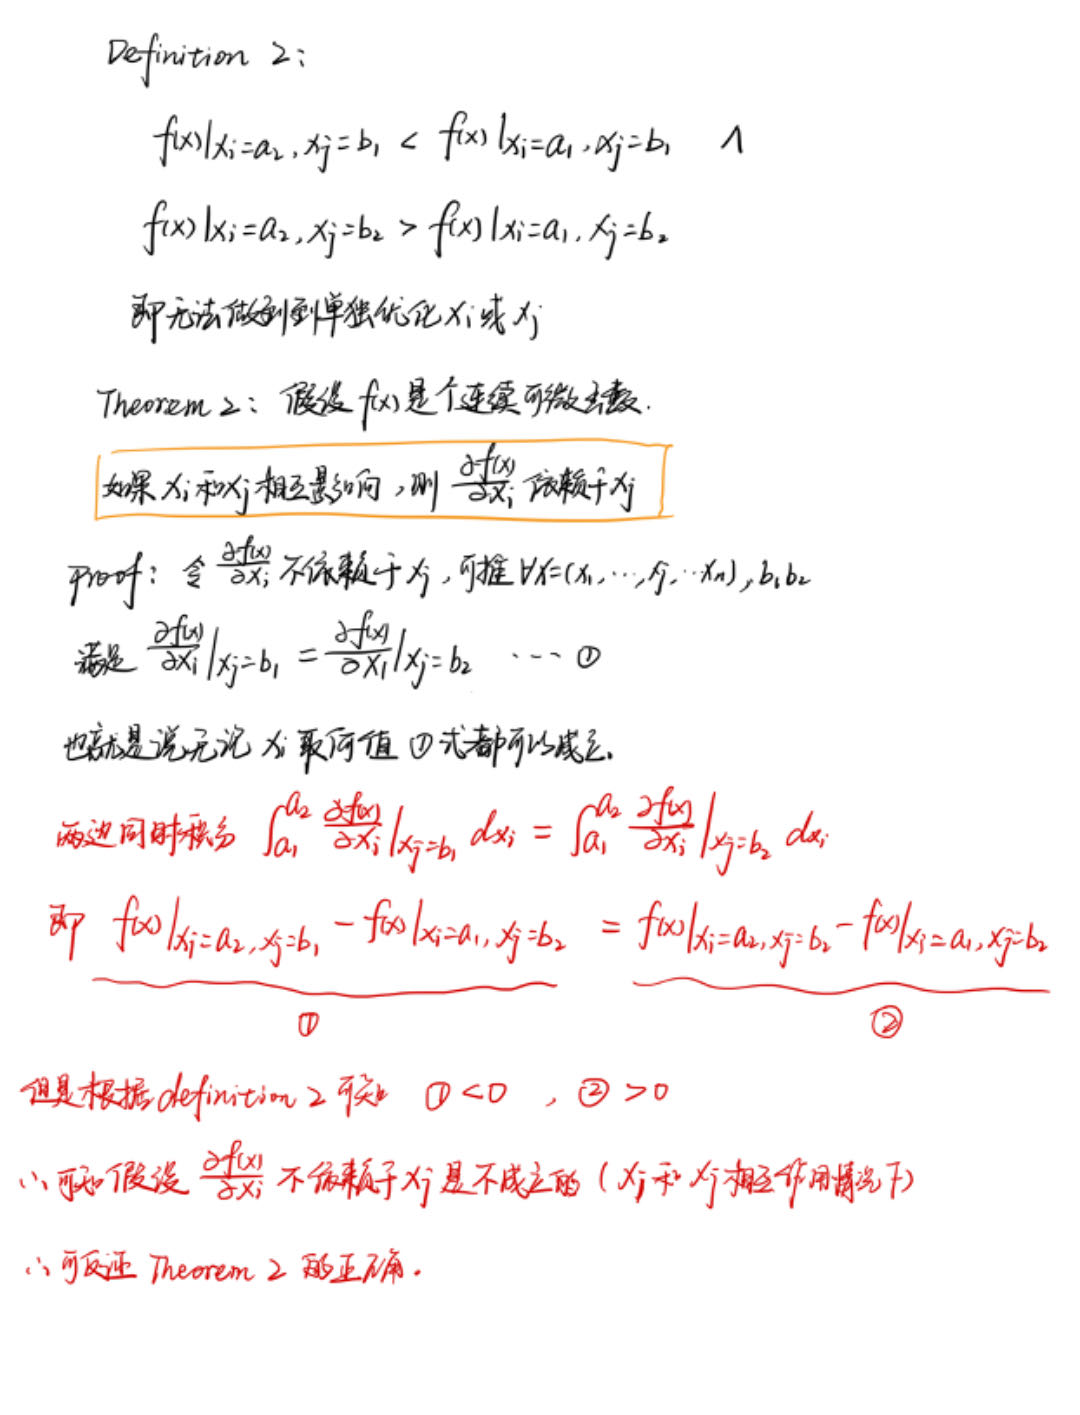 Definition 2:
f(x)|xi=a₂, xj=b₁ < f(x)|xi=a₁, xj=b₁ ∧
f(x)|xi=a₂, xj=b₂ > f(x)|xi=a₁, xj=b₂
即无法做到到单独优化xi或xj
Theorem 2: 假设f(x)是个连续可微函数.
如果xi和xj相互影响,则 ∂f(x)/∂xi 依赖于xj
Proof: 令 ∂f(x)/∂xi 不依赖于xj,可推∀x=(x₁,⋯,xj,⋯xn), b₁b₂
满足 ∂f(x)/∂xi|xj=b₁ = ∂f(x)/∂xi|xj=b₂ ⋯ ①
也就是说无论xi取何值①式都可以成立。
两边同时积分 ∫a₁^a₂ ∂f(x)/∂xi|xj=b₁ dxi = ∫a₁^a₂ ∂f(x)/∂xi|xj=b₂ dxi
即 f(x)|xi=a₂, xj=b₁ - f(x)|xi=a₁, xj=b₂ = f(x)|xi=a₂, xj=b₂ - f(x)|xi=a₁, xj=b₂
① ②
但是根据definition 2可知 ①<0 , ②>0
∴可知假设 ∂f(x)/∂xi 不依赖于xj是不成立的(xj和xj相互作用情况下)
∴可反证Theorem 2的正确.